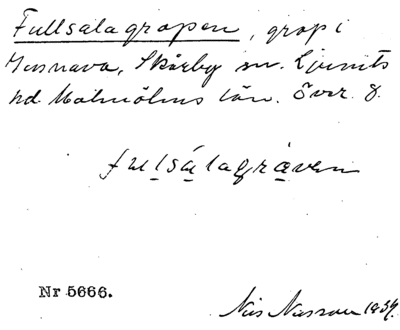 Fullsalagropen, grop i
Gusnava, Skårby sn. Ljunits
hd. Malmöhus län. Övr. 8.
fulsálagræven
Nr 5666.
Nils Nilsson 1934.